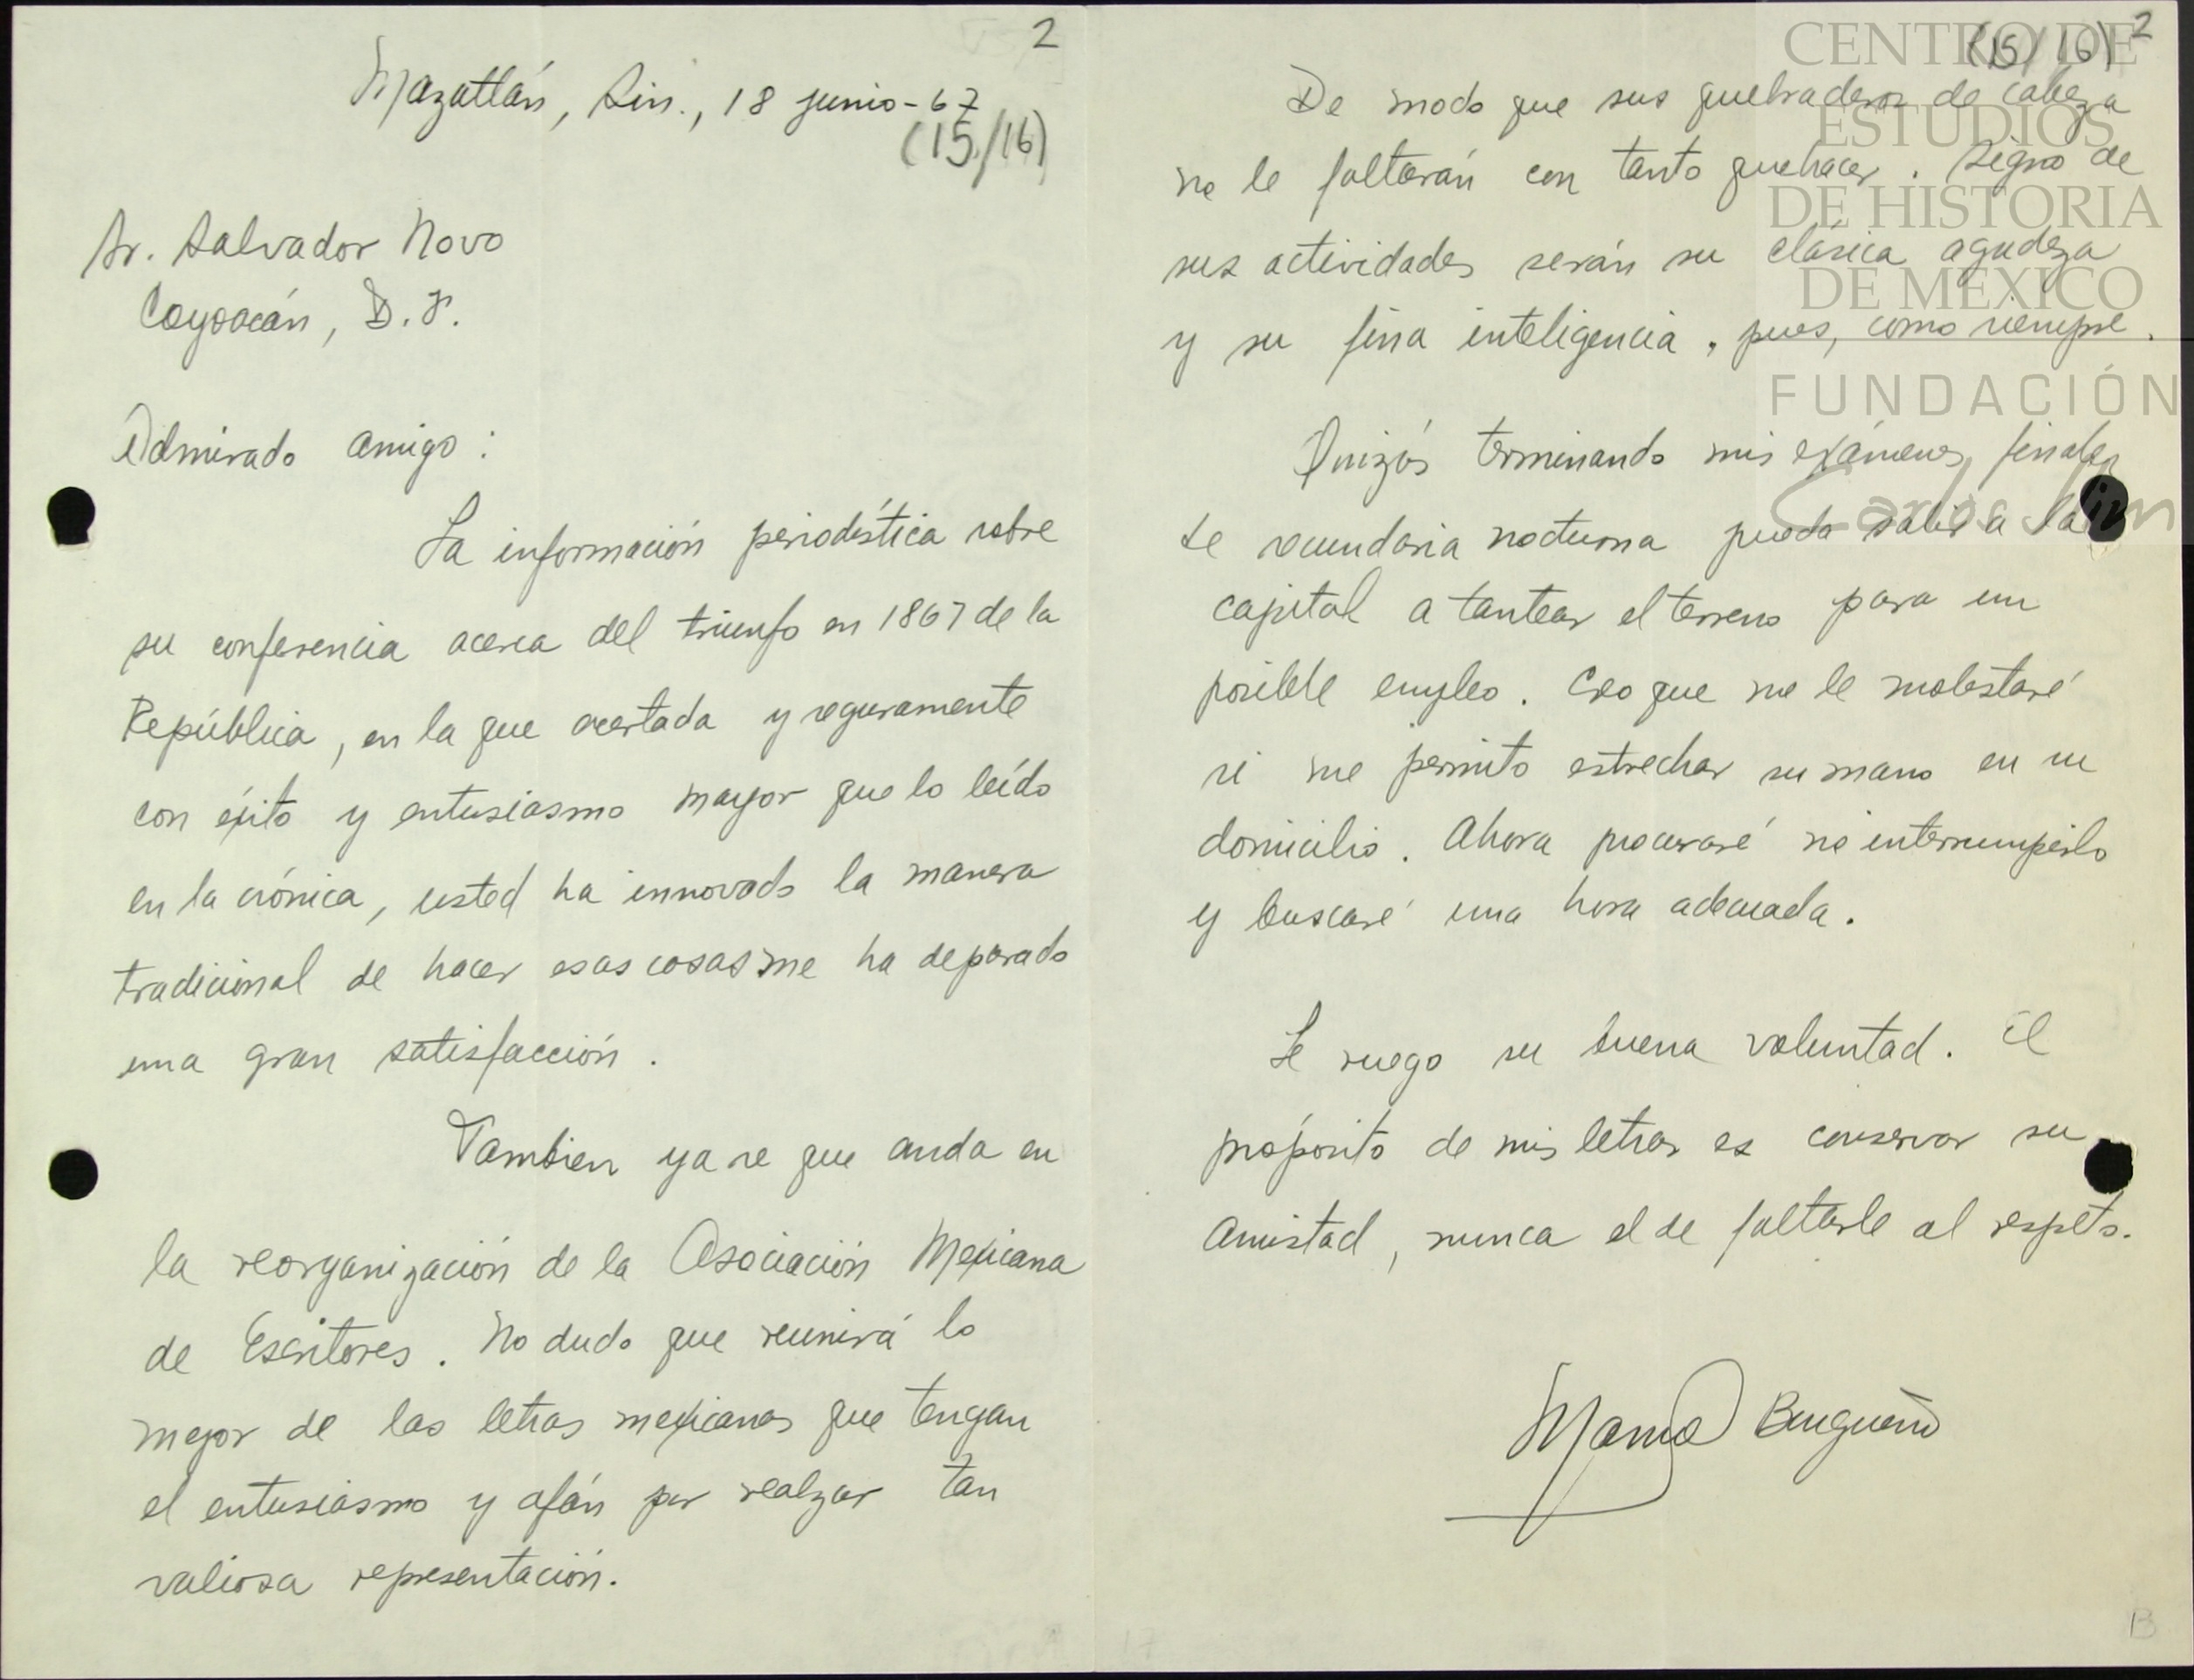 2
Mazatlán, Sin., 18 junio-67
(15/16)
Sr. Salvador Novo
Coyoacán, D.F.
Admirado amigo:
La información periodística sobre
su conferencia acerca del triunfo en 1867 de la
República, en la que acertada y seguramente
con éxito y entusiasmo mayor que lo leído
en la crónica, usted ha innovado la manera
tradicional de hacer esas cosas me ha deparado
una gran satisfacción.
Tambien ya se que anda en
la reorganización de la Asociación Mexicana
de Escritores. No dudo que reunirá lo
mejor de las letras mexicanas que tengan
el entusiasmo y afán por realzar tan
valiosa representación.
(15/16) 2
De modo que sus quebraderos de cabeza
no le faltarán con tanto quehacer. Signo de
sus actividades serán su clásica agudeza
y su fina inteligencia, pues, como siempre.
Quizás terminando mis exámenes finales
de secundaria nocturna pueda salir a la
capital a tantear el terreno para un
posible empleo. Creo que no le molestaré
si me permito estrechar su mano en su
domicilio. Ahora procuraré no interrumpirlo
y buscaré una hora adecuada.
Le ruego su buena voluntad. El
propósito de mis letras es conservar su
amistad, nunca el de faltarle al respeto.
Burgueño
CENTRO DE
ESTUDIOS
DE HISTORIA
DE MÉXICO
FUNDACIÓN
Carlos Slim
B